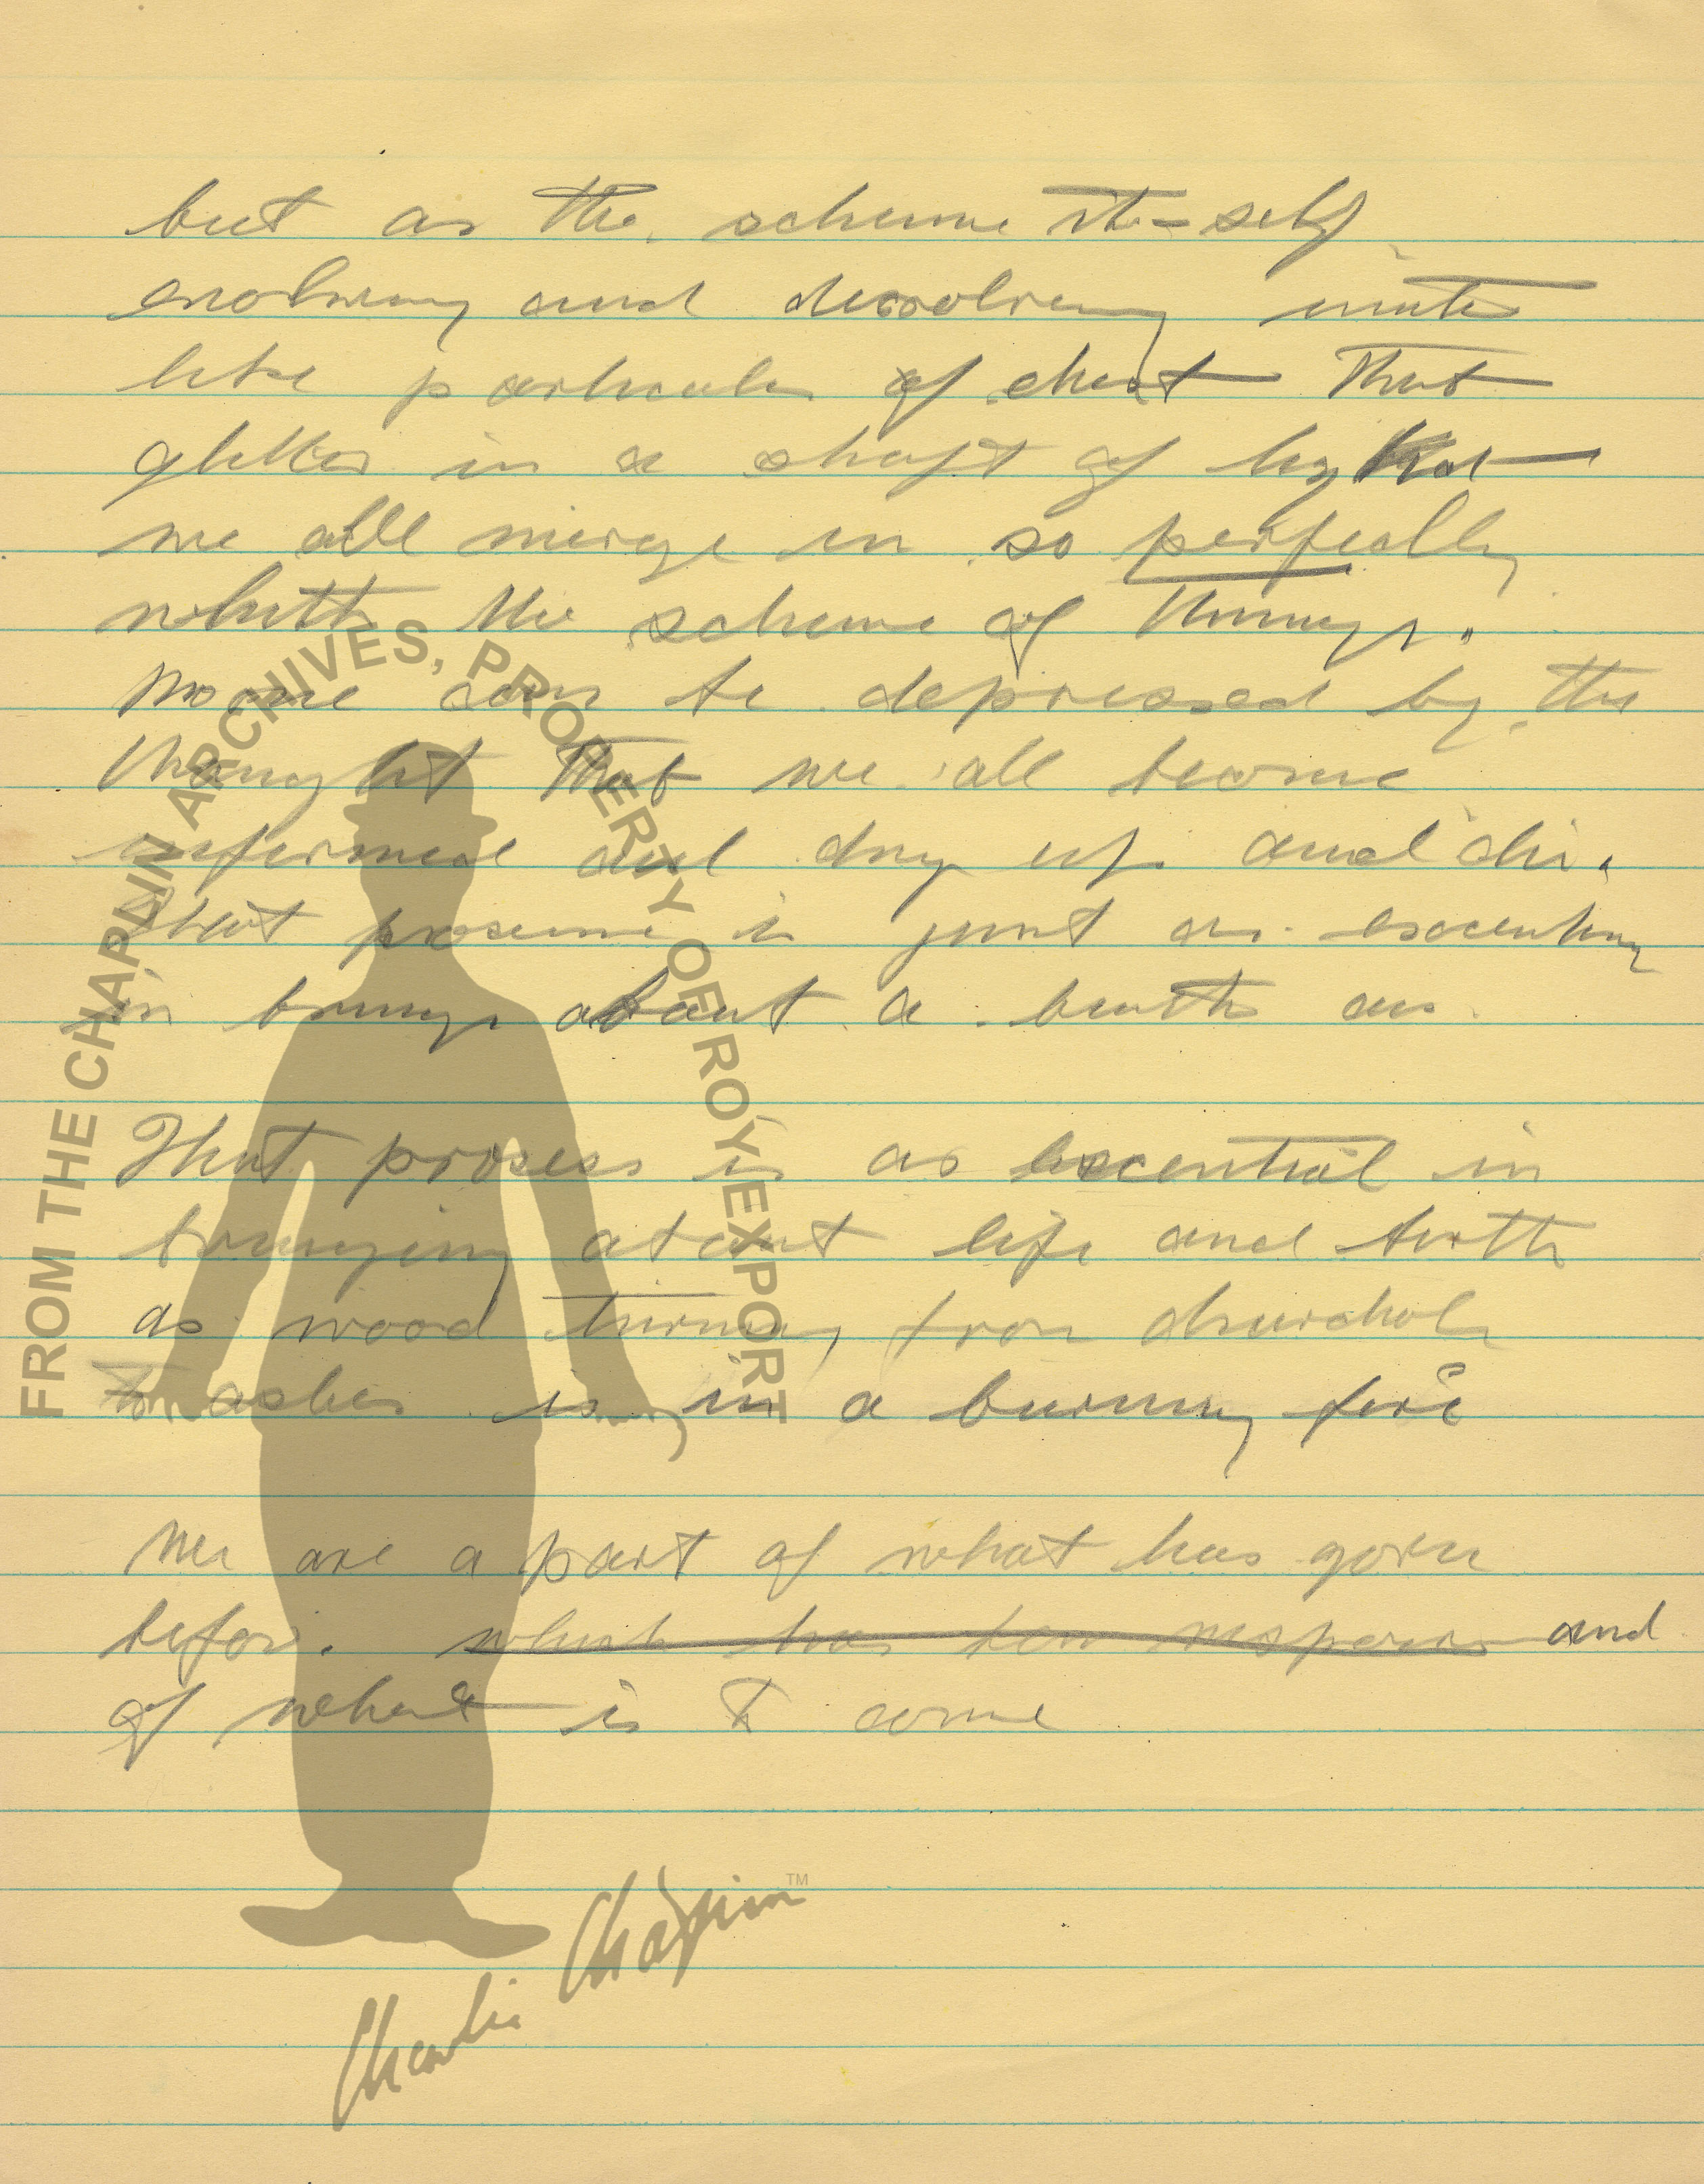 but as the scheme its-self
evolving and desolving units
like particals of dust that
glitter in a shaft of light
we all merge in so perfectly
whith the scheme of things.
No one can be depressed by the
thought that we all become
infirmed and dry up and die.
that prosess is just as
in brings about a birth as
That prosess is as escential in
bringing about life and birth
as wood turning from charchole
to ashes is in a burning fire
We are a part of what has gone
before. which has been and
of what is to come
FROM THE CHAPLIN ARCHIVES, PROPERTY OF ROY EXPORT
Charlie Chaplin™